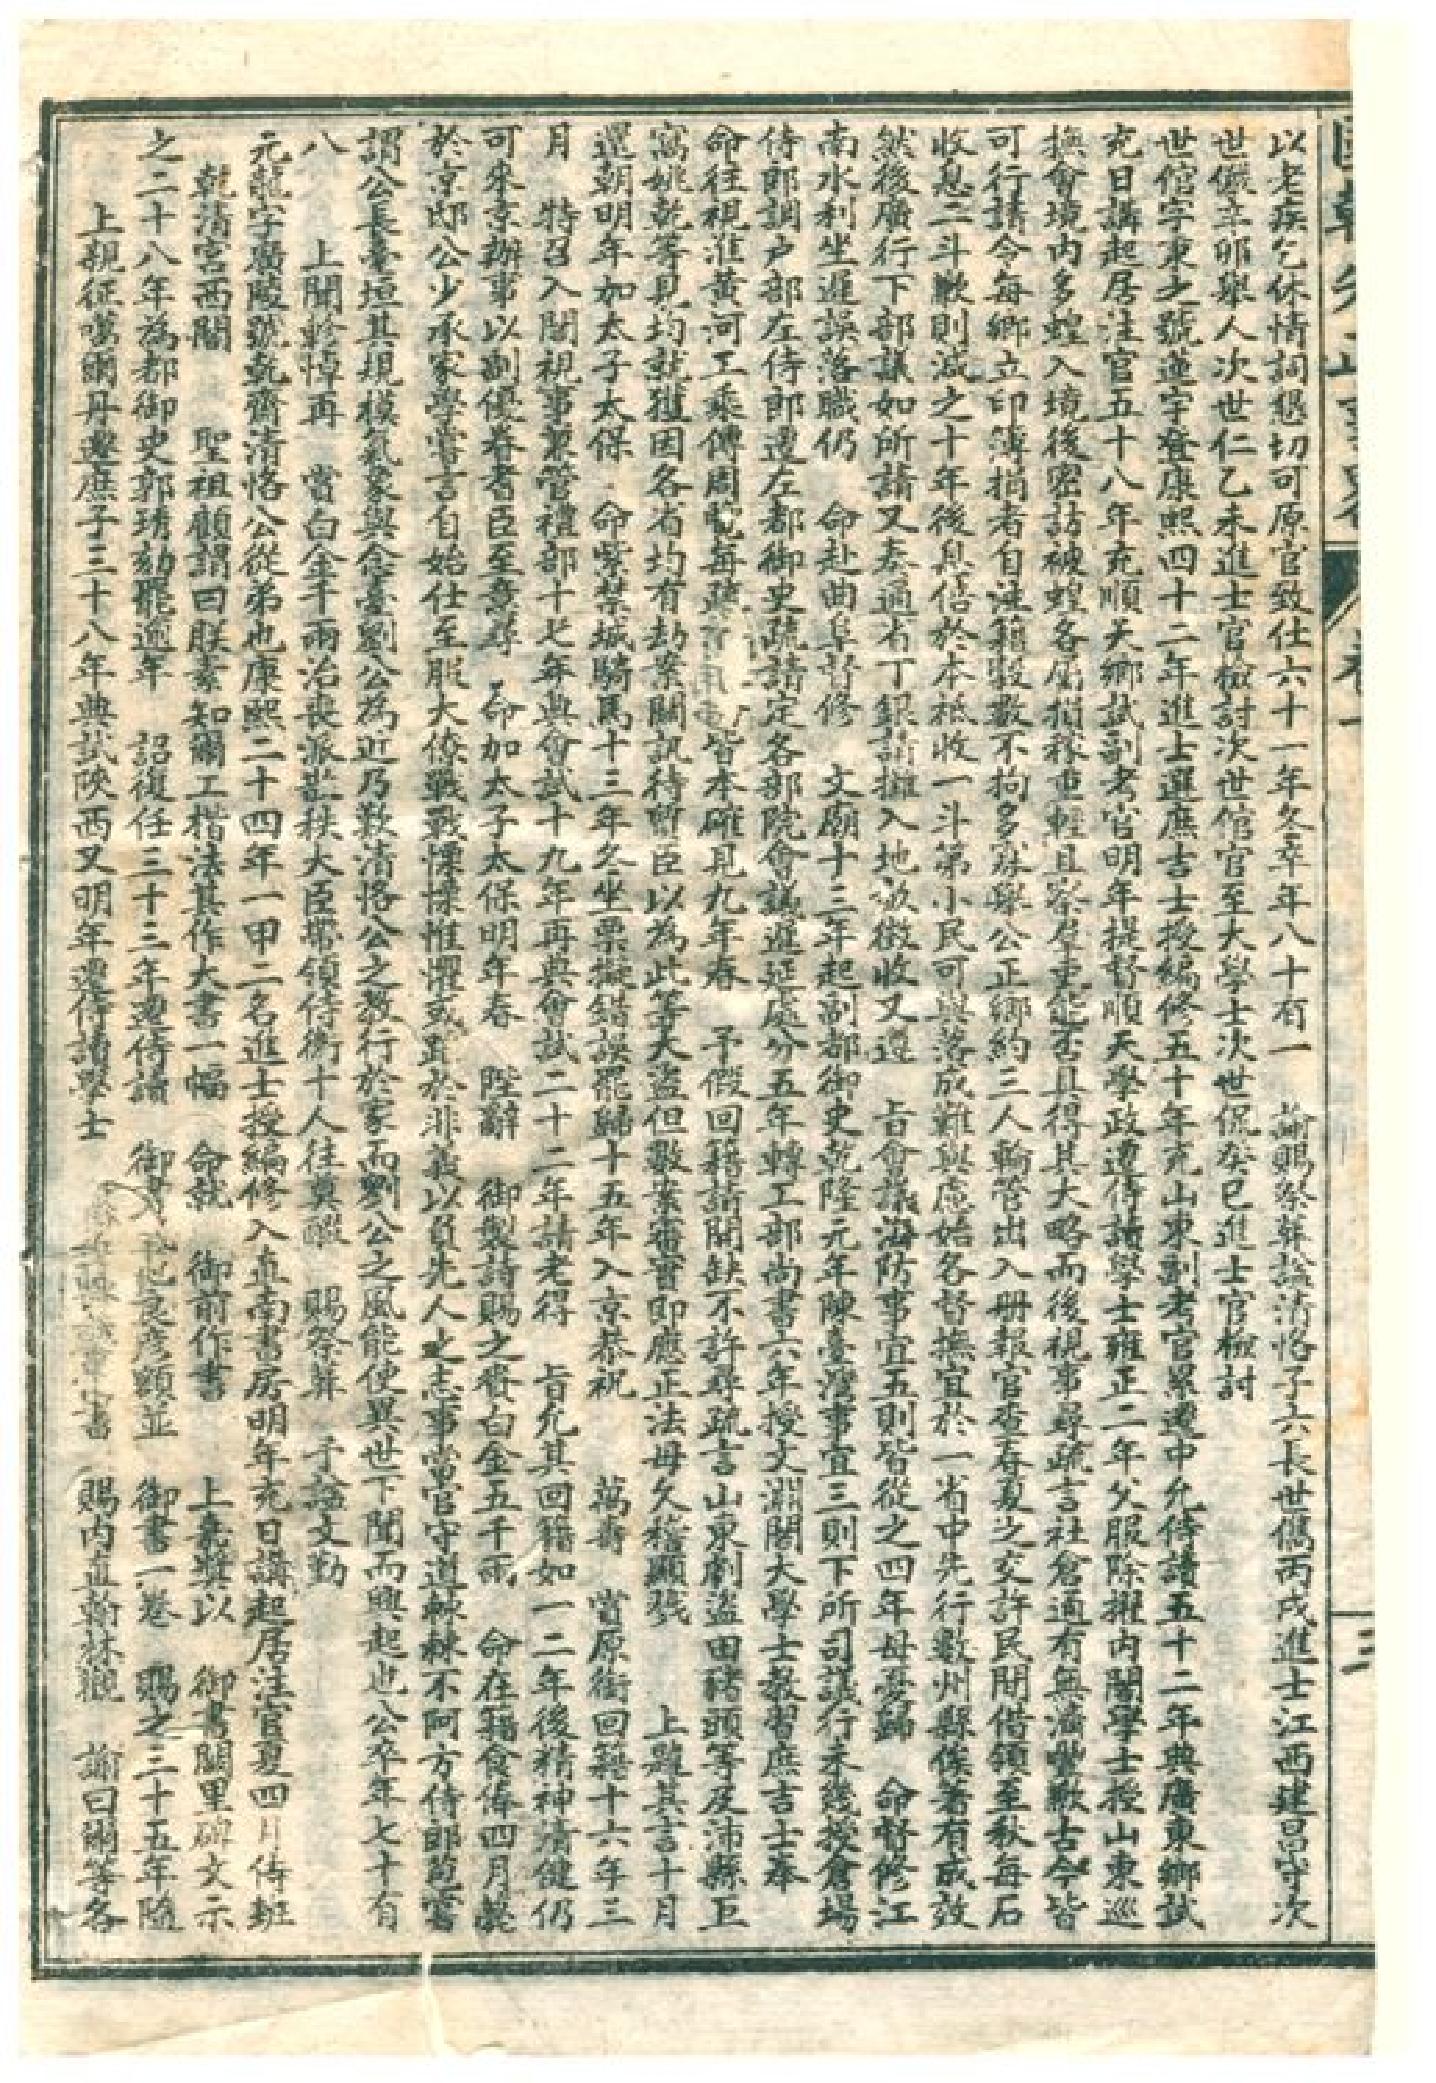 以老疾乞休情詞懇切可原官致仕六十一年冬卒年八十有一　諭賜祭葬諡清恪子六長世儁丙戌進士江西建昌守次
世儼辛卯舉人次世仁乙未進士官檢討次世倌官至大學士次世侃癸巳進士官檢討
世倌字秉之號蓮宇登康熙四十二年進士選庶吉士授編修五十年充山東副考官累遷中允侍讀五十二年典廣東鄉試
充日講起居注官五十八年充順天鄉試副考官明年提督順天學政遷侍讀學士雍正二年父服除擢內閣學士授山東巡
撫會境內多蝗入境後密訪被蝗各屬捐稼重輕且察羣吏能否具得其大略而後視事尋疏言社倉通有無濟豐歉古今皆
可行請令每鄉立印簿捐者自注籍穀數不拘多寡舉公正鄉約三人輪管出入册報官查春夏之交許民間借領至秋每石
收息二斗歉則減之十年後息倍於本祗收一斗第小民可與落成難與慮始各督撫宜於一省中先行數州縣俟著有成效
然後廣行下部議如所請又奏通省丁銀請攤入地畝徵收又遵　旨會議海防事宜五則皆從之四年母憂歸　命督修江
南水利坐遲誤落職仍　命赴曲阜督修　文廟十三年起副都御史乾隆元年陳臺灣事宜三則下所司議行未幾授倉場
侍郎調戶部左侍郎遷左都御史疏請定各部院會議遲延處分五年轉工部尚書六年授文淵閣大學士教習庶吉士奉
命往視淮黃河工乘傳周覽每疏皆本確見九年春　予假回籍請開缺不許尋疏言山東劇盜田豬頭等及沛縣巨
窩姚乾等見均就獲因各省均有劫案關訊待暫臣以為此等大盜但數案審實即應正法毋久稽顯戮　上韙其言十月
還朝明年加太子太保　命紫禁城騎馬十三年冬坐票擬錯誤罷歸十五年入京恭祝　萬壽　賞原銜回籍十六年三
月　特召入閣視事兼管禮部十七年典會試十九年再典會試二十二年請老得　旨允其回籍如一二年後精神清健仍
可來京辦事以副優眷耆臣至意尋　命加太子太保明年春　陛辭　御製詩賜之賚白金五千兩　命在籍食俸四月薨
於京邸公少承家學嘗言自始仕至服大僚戰戰慄慄惟懼或趾於非義以負先人之志事當官守道棘棘不阿方侍郎苞嘗
謂公長臺垣其規模氣象與合臺劉公為近乃歎清恪公之教行於家而劉公之風能使異世下聞而興起也公卒年七十有
八　上聞軫悼再　賞白金千兩治喪派散秩大臣帶領侍衛十人往奠醊　賜祭葬　予諡文勤
元龍字廣陵號乾齋清恪公從弟也康熙二十四年一甲二名進士授編修入直南書房明年充日講起居注官夏四月侍班
乾清宮西閣　聖祖顧謂曰朕素知爾工楷法其作大書一幅　命就　御前作書　上嘉獎以　御書闕里碑文示
之二十八年為都御史郭琇劾罷逾年　詔復任三十三年遷侍讀　御書良彥顧並　御書一卷　賜之三十五年隨
上親征噶爾丹遷庶子三十八年典試陝西又明年遷侍讀學士　賜內直翰林觀　諭曰爾等各